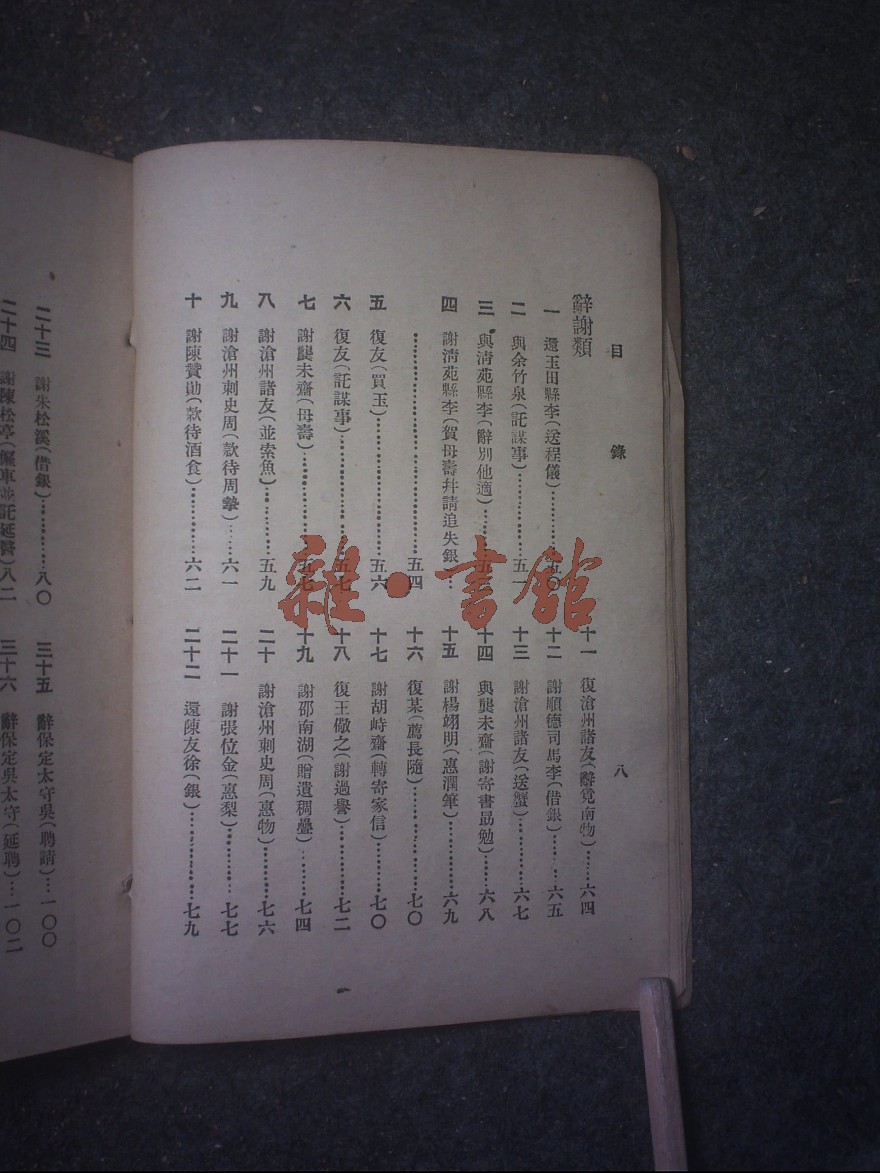 目 錄 八
辭謝類
一 還玉田縣李(送程儀)………五〇
二 與余竹泉(託謀事)………五一
三 與清苑縣李(辭別他適)………五
四 謝清苑縣李(賀母壽幷請追失銀…
………五四
五 復友(買玉)………五六
六 復友(託謀事)………五七
七 謝龔未齋(母壽)………五七
八 謝滄州諸友(並索魚)………五九
九 謝滄州刺史周(款待周摯)……六一
十 謝陳贊勛(款待酒食)……六二
十一 復滄州諸友(辭覓南物)……六四
十二 謝順德司馬李(借銀)……六五
十三 謝滄州諸友(送蟹)……六七
十四 與龔未齋(謝寄書勗勉)……六八
十五 謝楊翊明(惠潤筆)………六九
十六 復某(薦長隨)………七〇
十七 謝胡峙齋(轉寄家信)………七〇
十八 復王儆之(謝過譽)………七二
十九 謝邵南湖(贈遺稠疊)……七四
二十 謝滄州刺史周(惠物)……七六
二十一 謝張位金(惠梨)………七七
二十二 還陳友徐(銀)………七九
二十三 謝朱松溪(借銀)………八〇
二十四 謝陳松亭(僱車並託延醫)八二
三十五 辭保定太守吳(聘請)…一〇〇
三十六 辭保定吳太守(延聘)…一〇二
雜·書館